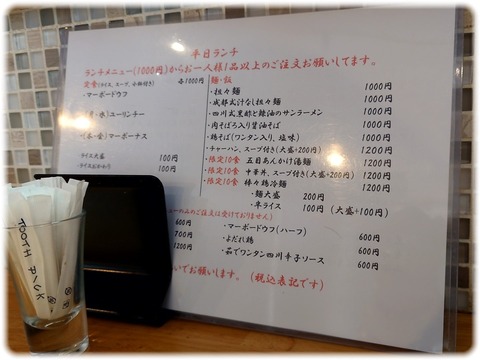 平日ランチ
ランチメニュー(1000円)からお一人様1品以上のご注文お願いしてます。
定食(ライス、スープ、小鉢付き) 各1000円
・マーボードウフ
・(月・水)ユーリンチー
・(木・金)マーボーナス
・ライス大盛 100円
・ライスおかわり 100円
麺・飯
・担々麺 1000円
・成都式汁なし担々麺 1000円
・四川式黒酢と辣油のサンラーメン 1000円
・肉そぼろ入り醤油そば 1000円
・鶏そば(ワンタン入り、塩味) 1000円
・チャーハン、スープ付き(大盛+200円) 1200円
・限定10食 五目あんかけ湯麺 1200円
・限定10食 中華丼、スープ付き(大盛+200円) 1200円
・限定10食 棒々鶏冷麺 1200円
・麺大盛 200円
・半ライス 100円 (大盛+100円)
ューの品のご注文は受けておりません)
600円
700円
1200円
・マーボードウフ(ハーフ) 600円
・よだれ鶏 600円
・茹でワンタン四川辛子ソース 600円
いでお願いします。(税込表記です)
TOOTH PICK